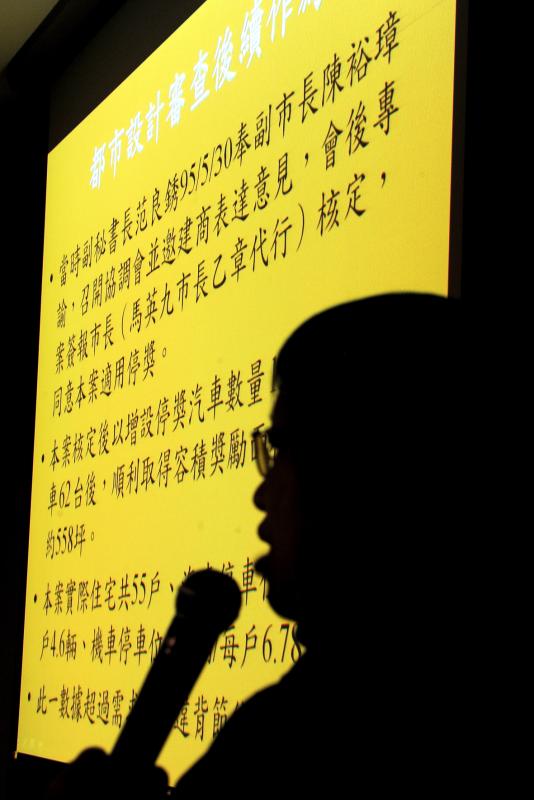 都市設計審查後續作為
• 當時副秘書長范良銹95/5/30奉副市長陳裕璋
諭，召開協調會並邀建商表達意見，會後專
案簽報市長（馬英九市長乙章代行）核定，
同意本案適用停獎。
• 本案核定後以增設停獎汽車數量
車62台後，順利取得容積獎勵面
約558坪。
• 本案實際住宅共55戶、汽車停車
戶4.6輛、機車停車位 每戶6.78
• 此一數據超過需 違背節